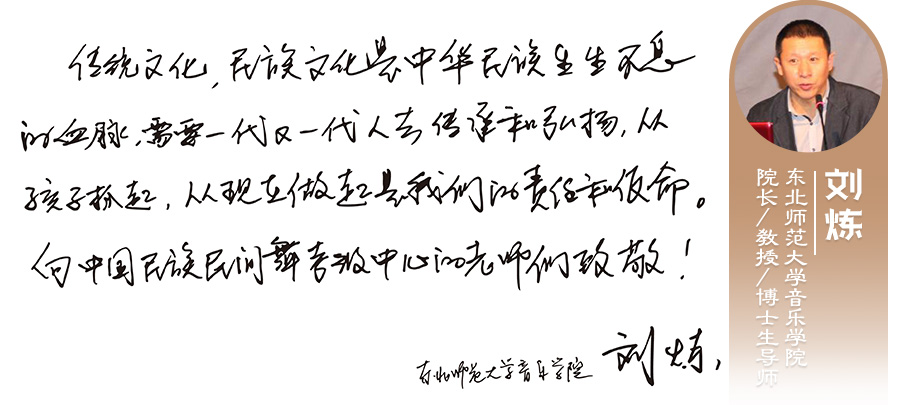 传统文化,民族文化是中华民族生生不息
的血脉,需要一代又一代人去传承和弘扬,从
孩子抓起,从现在做起是我们的责任和使命。
向中国民族民间舞考级中心的老师们致敬!
东北师范大学音乐学院 刘炼
刘炼
东北师范大学音乐学院
院长/教授/博士生导师